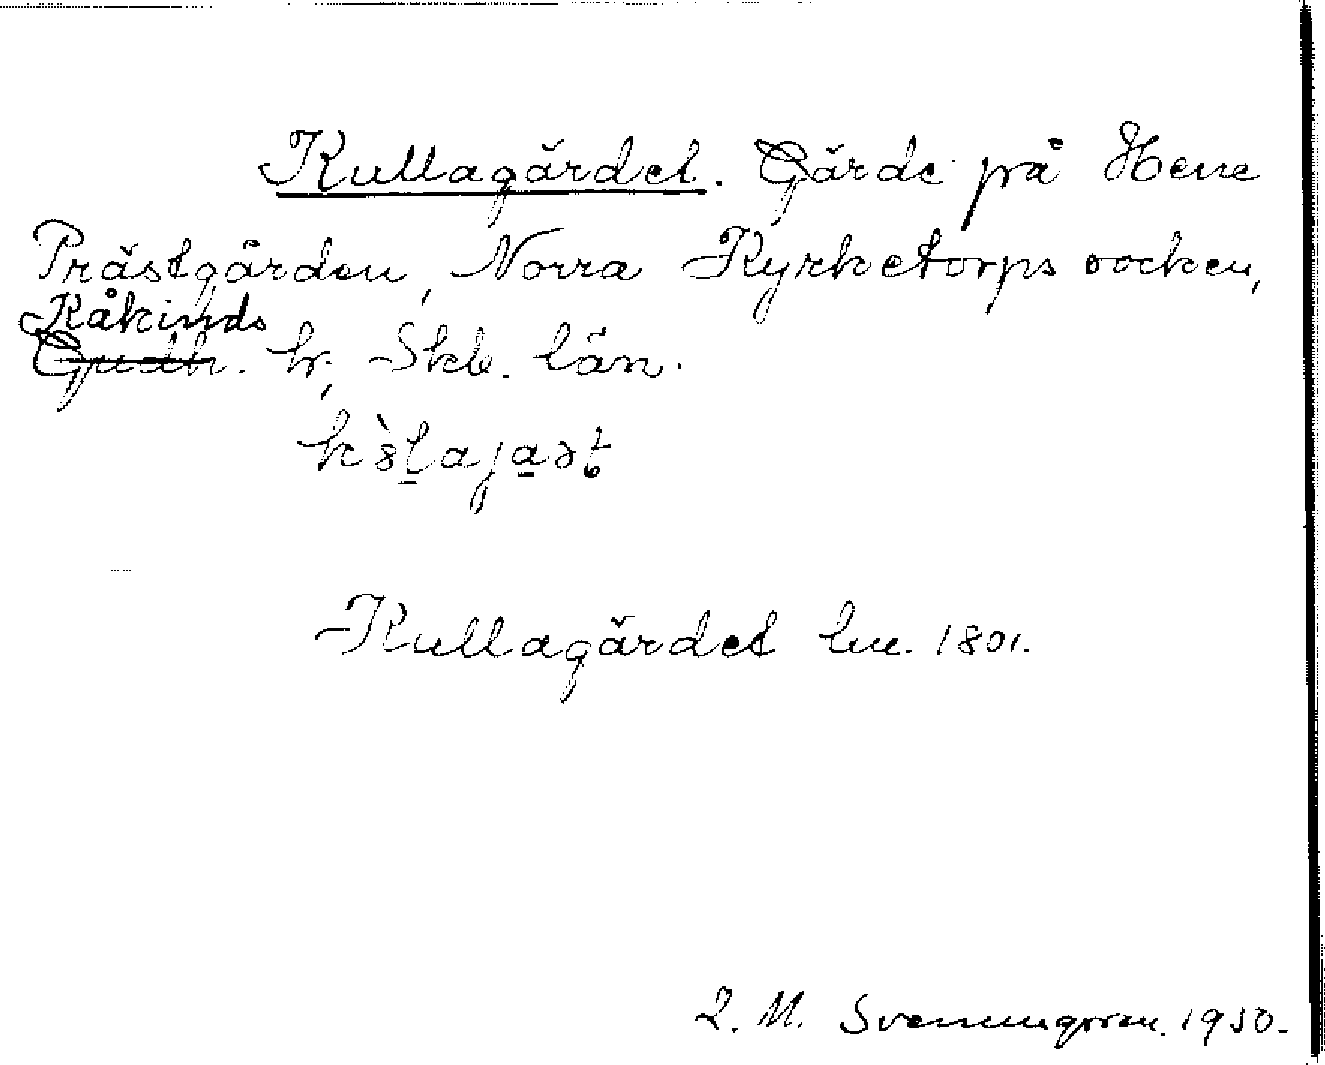 Kullagärdet. Gärde på Hene
Prästgården, Norra Kyrketorps socken,
Kåkinds
Gudh. hr, Skb. län.
Kullagärdet lm. 1801.
L. M. Svenungsson. 1930.